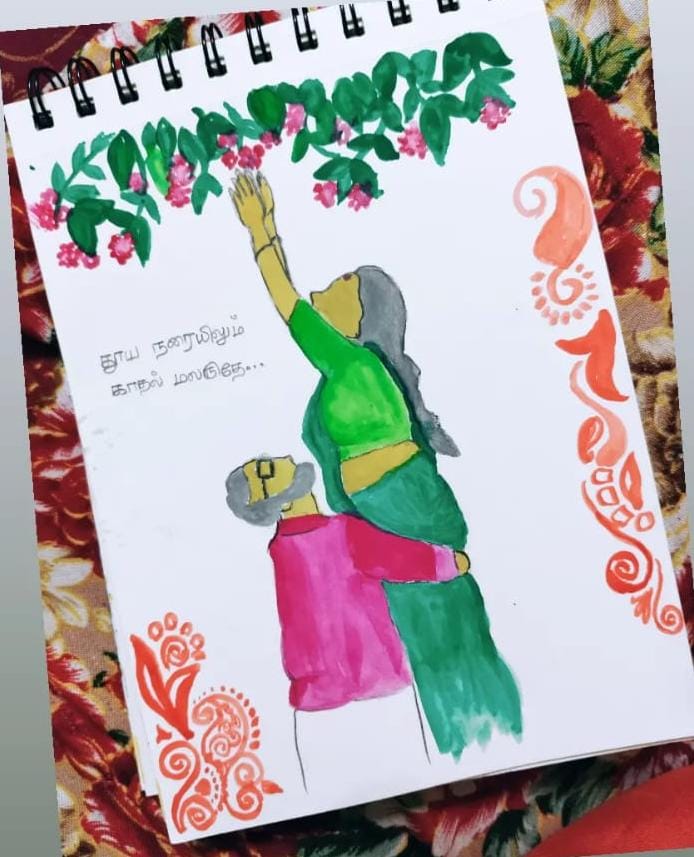 தூய நரையிலும்
காதல் மலருதே...